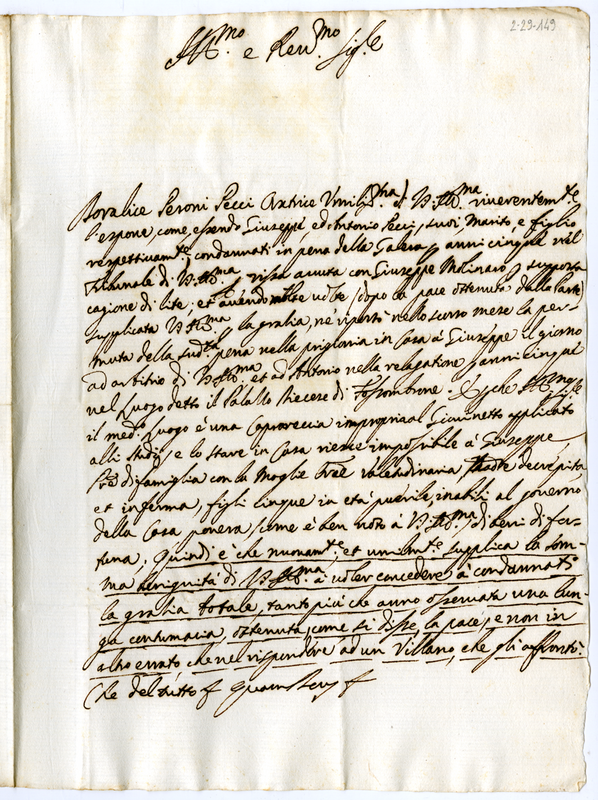 2-29-149
Ill.mo e Rev.mo Sig.re
Peroni Pecci Oratrice Umiliss.ma di V.S. Ill.ma riverentem.te
l'espone, come essendo Giuseppe, ed Antonio Pecci, suoi Marito, e figlio
respettivam.te condannati in pena della Galera p anni cinque nel
Tribunale di V.S. Ill.ma p rissa avuta con Giuseppe Molinaro p supposta
cagione di lite; et avendo molte volte (dopo la pace ottenuta dalla Parte)
supplicata V.S. Ill.ma p la grazia, ne riportò nello scorso mese la per-
muta della sud.a pena nella prigionia in Casa a Giuseppe il giorno
ad arbitrio di V.S. Ill.ma, et ad Antonio nella relegatione p anni cinque
nel luogo detto il Palazzo Diecese di Fossombrone. E p che Ill.mo Sig.re
il med.o luogo è una Caproveccia impropria al Giovinetto applicato
alli studij, e lo stare in Casa riesce impossibile a Giuseppe
P.re di famiglia con la Moglie valetudinaria, Madre decrepita
et inferma, figli cinque in età puerile, inabili al governo
della Casa povera, (come è ben noto a V.S. Ill.ma) di beni di for-
tuna, Quindi è che nuovam.te et umilm.te supplica la som-
ma benignità di V.S. Ill.ma a voler concedere a condannati
la grazia totale, tanto più che anno osservata una lun-
ga contumacia, ottenuta, come si disse, la pace, e non in
altro errato, che nel rispondere ad un Villano, che gli affrontò.
Che del tutto Quam Deus